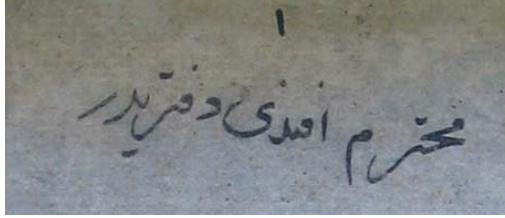 ١
محترم افندی دفتریدر